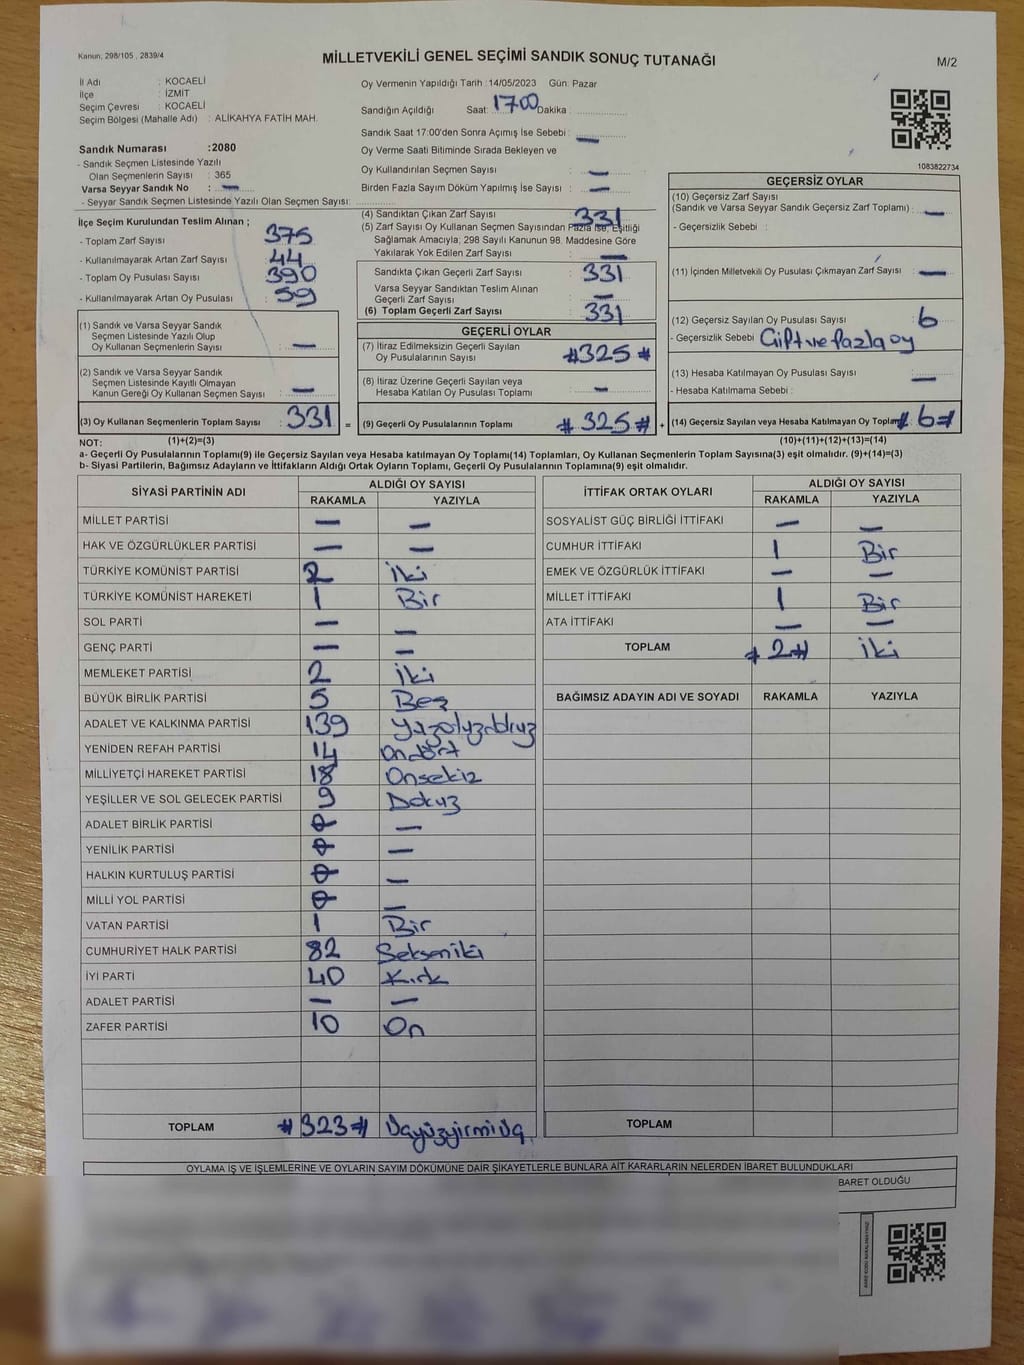 Kanun; 298/105 , 2839/4
MİLLETVEKİLİ GENEL SEÇİMİ SANDIK SONUÇ TUTANAĞI
M/2
İl Adı : KOCAELİ
İlçe : İZMİT
Seçim Çevresi : KOCAELİ
Seçim Bölgesi (Mahalle Adı) : ALİKAHYA FATİH MAH.
Sandık Numarası :2080
- Sandık Seçmen Listesinde Yazılı
Olan Seçmenlerin Sayısı : 365
Varsa Seyyar Sandık No : —
- Seyyar Sandık Seçmen Listesinde Yazılı Olan Seçmen Sayısı:
Oy Vermenin Yapıldığı Tarih :14/05/2023 Gün: Pazar
Sandığın Açıldığı Saat: 17.00 Dakika :
Sandık Saat 17:00'den Sonra Açımış İse Sebebi : —
Oy Verme Saati Bitiminde Sırada Bekleyen ve
Oy Kullandırılan Seçmen Sayısı : —
Birden Fazla Sayım Döküm Yapılmış İse Sayısı : —
1083822734
İlçe Seçim Kurulundan Teslim Alınan ;
- Toplam Zarf Sayısı : 375
- Kullanılmayarak Artan Zarf Sayısı : 44
- Toplam Oy Pusulası Sayısı : 390
- Kullanılmayarak Artan Oy Pusulası : 59
(1) Sandık ve Varsa Seyyar Sandık
Seçmen Listesinde Yazılı Olup
Oy Kullanan Seçmenlerin Sayısı : —
(2) Sandık ve Varsa Seyyar Sandık
Seçmen Listesinde Kayıtlı Olmayan
Kanun Gereği Oy Kullanan Seçmen Sayısı : —
(3) Oy Kullanan Seçmenlerin Toplam Sayısı : 331 =
(4) Sandıktan Çıkan Zarf Sayısı : 331
(5) Zarf Sayısı Oy Kullanan Seçmen Sayısından Fazla ise, Eşitliği
Sağlamak Amacıyla; 298 Sayılı Kanunun 98. Maddesine Göre
Yakılarak Yok Edilen Zarf Sayısı : —
Sandıkta Çıkan Geçerli Zarf Sayısı : 331
Varsa Seyyar Sandıktan Teslim Alınan
Geçerli Zarf Sayısı : —
(6) Toplam Geçerli Zarf Sayısı : 331
GEÇERLİ OYLAR
(7) İtiraz Edilmeksizin Geçerli Sayılan
Oy Pusulalarının Sayısı : #325#
(8) İtiraz Üzerine Geçerli Sayılan veya
Hesaba Katılan Oy Pusulaları Toplamı : —
(9) Geçerli Oy Pusulalarının Toplamı : #325# +
GEÇERSİZ OYLAR
(10) Geçersiz Zarf Sayısı
(Sandık ve Varsa Seyyar Sandık Geçersiz Zarf Toplamı) : —
- Geçersizlik Sebebi :
(11) İçinden Milletvekili Oy Pusulası Çıkmayan Zarf Sayısı : —
(12) Geçersiz Sayılan Oy Pusulası Sayısı : 6
- Geçersizlik Sebebi : Çift ve fazla oy
(13) Hesaba Katılmayan Oy Pusulası Sayısı : —
- Hesaba Katılmama Sebebi :
(14) Geçersiz Sayılan veya Hesaba Katılmayan Oy Toplamı #6#
NOT: (1)+(2)=(3) (10)+(11)+(12)+(13)=(14)
a- Geçerli Oy Pusulasının Toplamı(9) ile Geçersiz Sayılan veya Hesaba Katılmayan Oy Toplamı(14) Toplamları, Oy Kullanan Seçmenlerin Toplam Sayısına(3) eşit olmalıdır. (9)+(14)=(3)
b- Siyasi Partilerin, Bağımsız Adayların ve İttifakların Aldığı Ortak Oyların Toplamı, Geçerli Oy Pusulalarının Toplamına(9) eşit olmalıdır.
SİYASİ PARTİNİN ADI ALDIĞI OY SAYISI
RAKAMLA YAZIYLA
MİLLET PARTİSİ — —
HAK VE ÖZGÜRLÜKLER PARTİSİ — —
TÜRKİYE KOMÜNİST PARTİSİ 2 İki
TÜRKİYE KOMÜNİST HAREKETİ 1 Bir
SOL PARTİ — —
GENÇ PARTİ — —
MEMLEKET PARTİSİ 2 İki
BÜYÜK BİRLİK PARTİSİ 5 Beş
ADALET VE KALKINMA PARTİSİ 139
YENİDEN REFAH PARTİSİ 14 Ondört
MİLLİYETÇİ HAREKET PARTİSİ 18 Onsekiz
YEŞİLLER VE SOL GELECEK PARTİSİ 9 Dokuz
ADALET BİRLİK PARTİSİ 0 —
YENİLİK PARTİSİ 0 —
HALKIN KURTULUŞ PARTİSİ 0 —
MİLLİ YOL PARTİSİ 0 —
VATAN PARTİSİ 1 Bir
CUMHURİYET HALK PARTİSİ 82 Sekseniki
İYİ PARTİ 40 Kırk
ADALET PARTİSİ — —
ZAFER PARTİSİ 10 On
TOPLAM #323# Üçyüzyirmiüç
İTTİFAK ORTAK OYLARI ALDIĞI OY SAYISI
RAKAMLA YAZIYLA
SOSYALİST GÜÇ BİRLİĞİ İTTİFAKI — —
CUMHUR İTTİFAKI 1 Bir
EMEK VE ÖZGÜRLÜK İTTİFAKI — —
MİLLET İTTİFAKI 1 Bir
ATA İTTİFAKI — —
TOPLAM #2# İki
BAĞIMSIZ ADAYIN ADI VE SOYADI RAKAMLA YAZIYLA
TOPLAM
OYLAMA İŞ VE İŞLEMLERİNE VE OYLARIN SAYIM DÖKÜMÜNE DAİR ŞİKAYETLERLE BUNLARA AİT KARARLARIN NELERDEN İBARET BULUNDUKLARI
BARET OLDUĞU